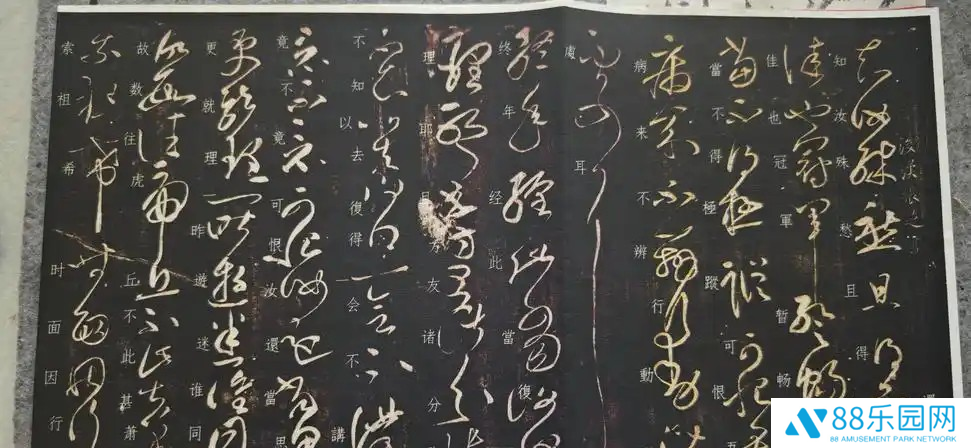 後漢張芝
知汝殊愁且得還
佳也冠軍暫畅
當不得極蹤可恨吾
病来不辨行動
處耳
终年经此當復
理耶且方友诸分
不知以去復得一会不講
竟不竟可恨汝還當思
更就理一昨遊迷谁同
故数往虎丘不此甚萧
索祖希时面因行
88乐园网
88 AMUSEMENT PARK NETWORK